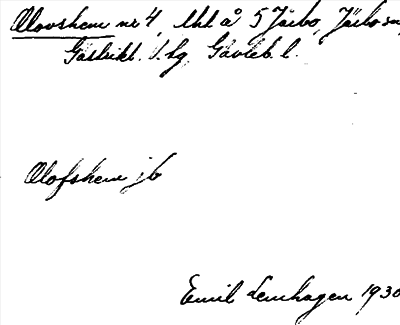 Olovshem nr 4, lht å 5 Järbo, Järbo sn,
Gästrikl. V. hg, Gävleb. l.
Olofshem jb
Emil Lemhagen 1930